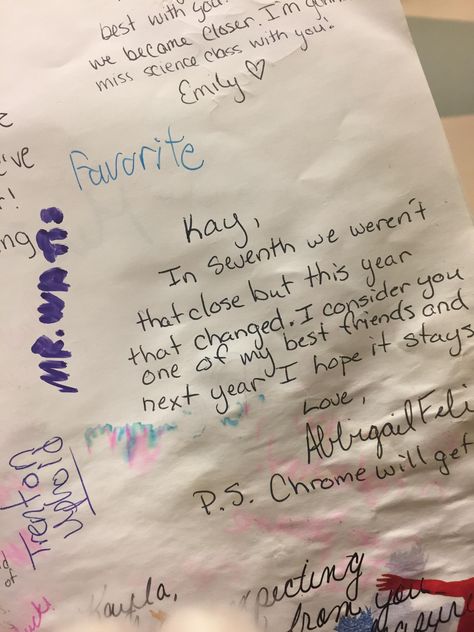 best with you!
we became closer. I'm gonna
miss science class with you!
Emily ♡
Favorite
Kay,
In seventh we weren't
that close but this year
that changed. I consider you
one of my best friends and
next year I hope it stays
Love,
Abbigail Feli
P.S. Chrome will get
MR. WATTS
Trenton
Kayla,
from you